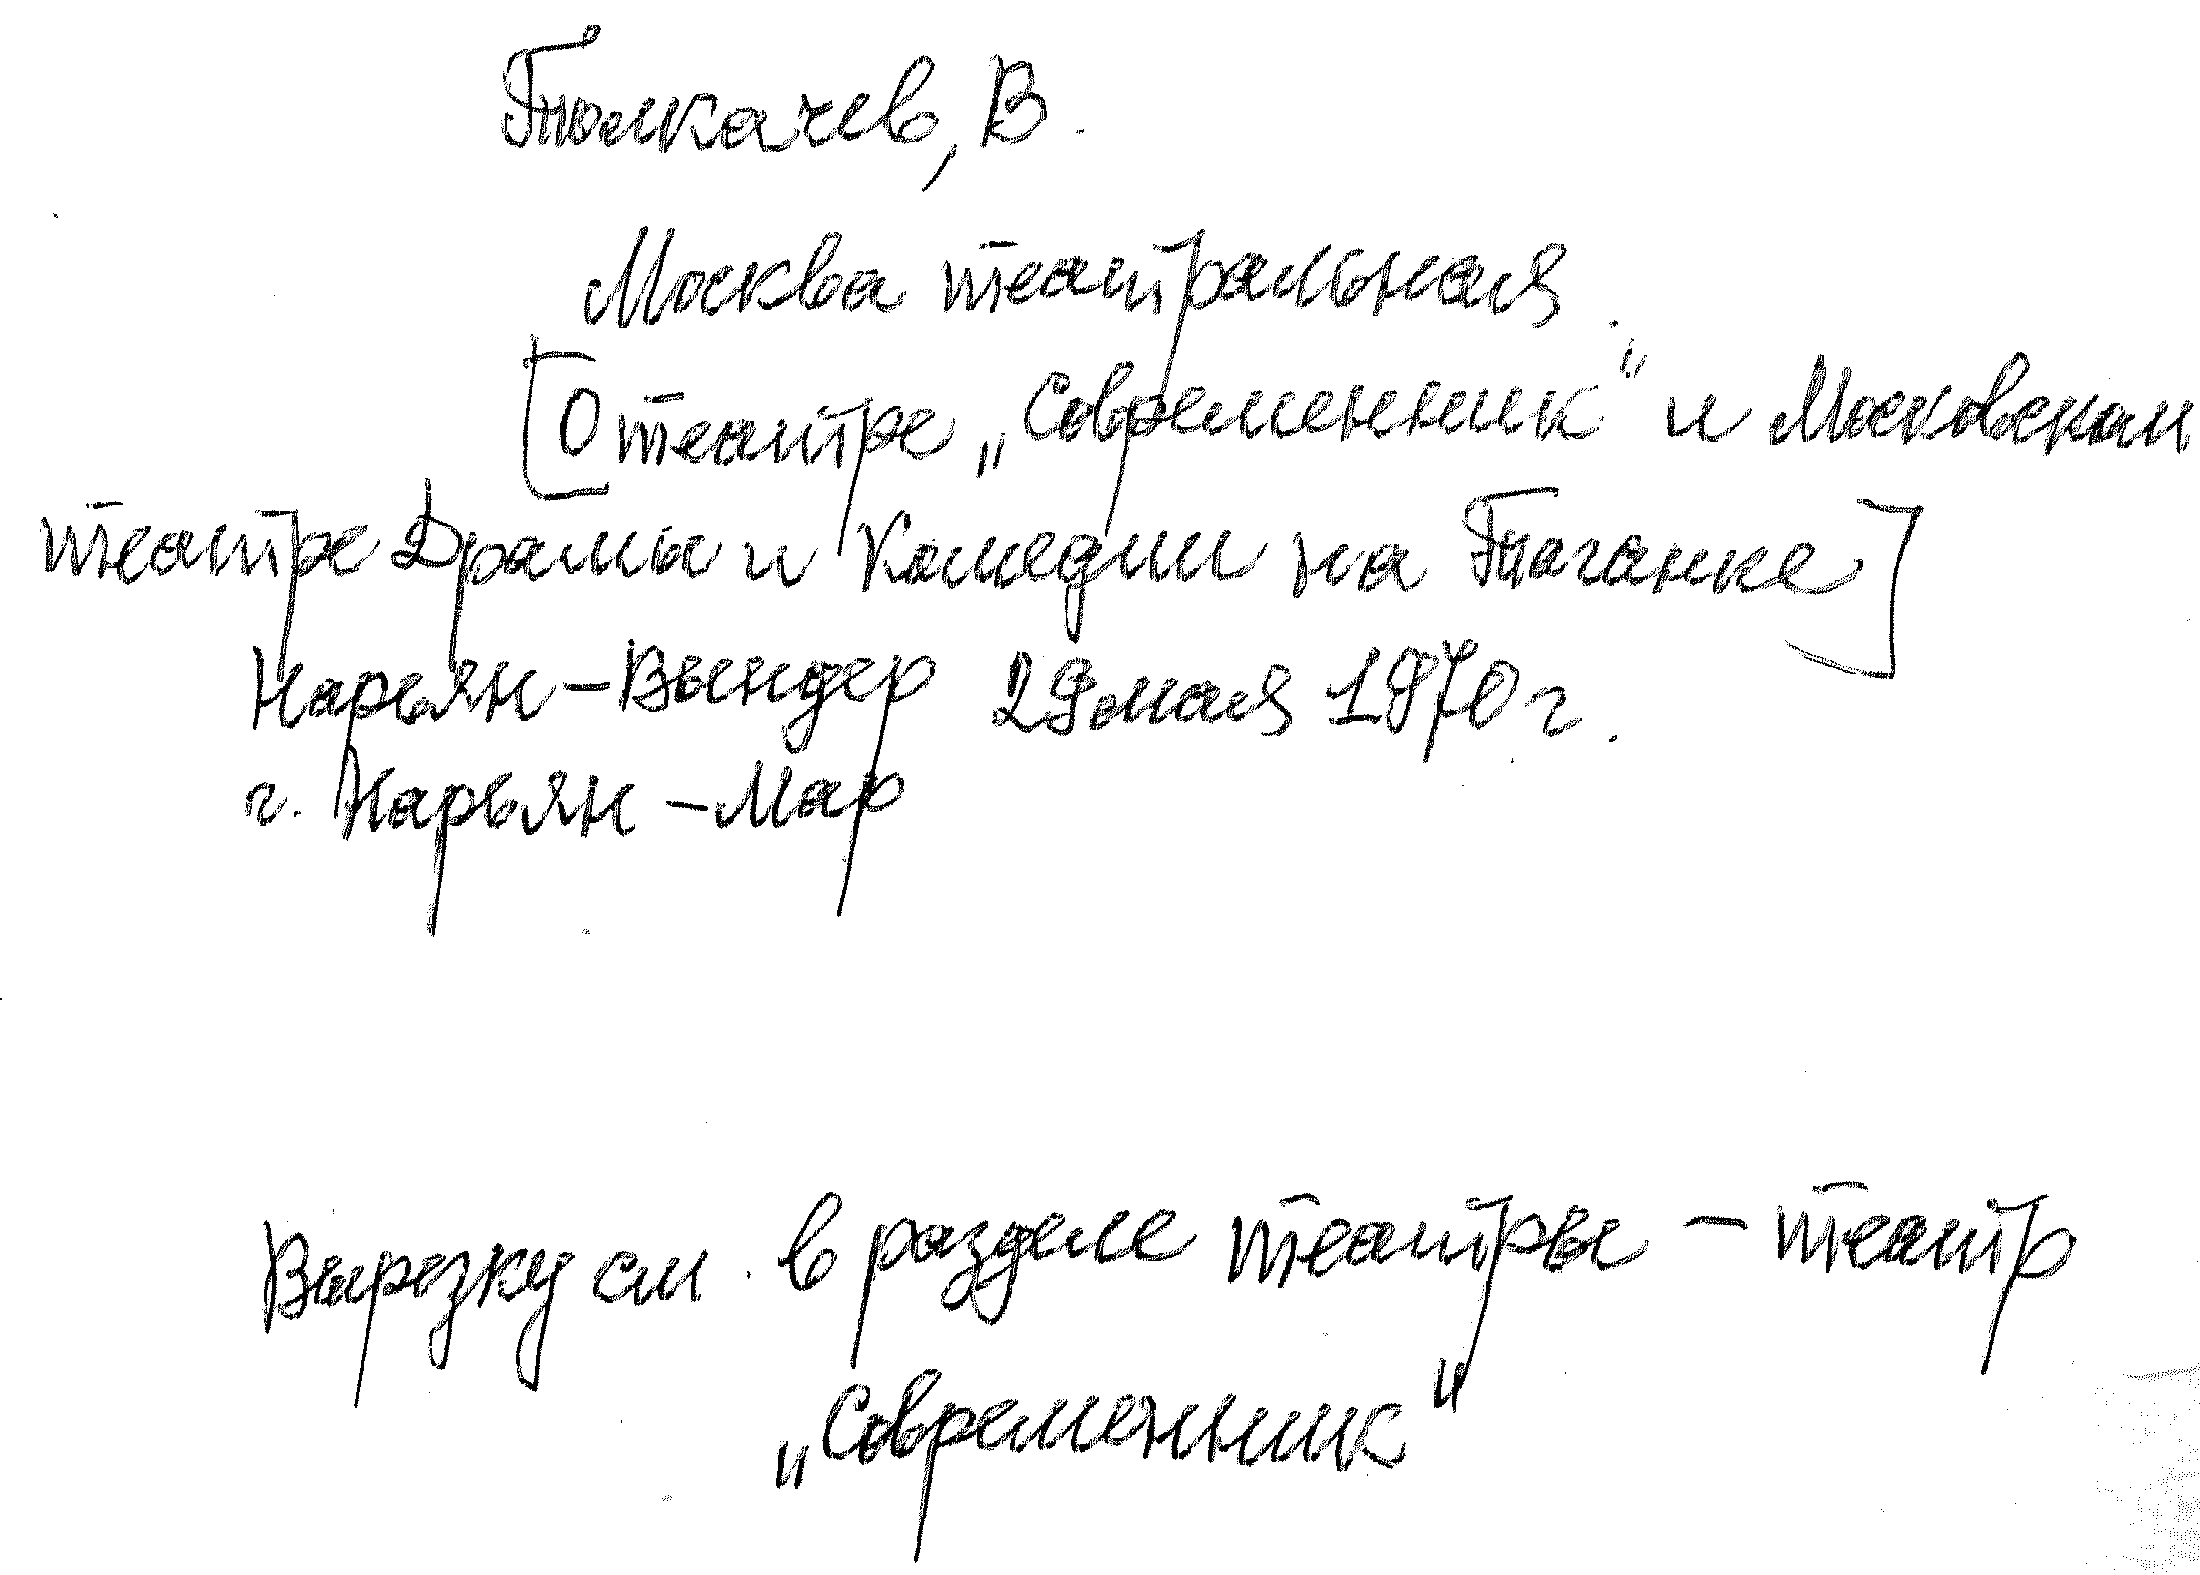 Толкачев, В.
Москва театральная.
[О театре „Современник" и Московском
театре Драмы и Комедии на Таганке]
Нарьян-Вындер 29 мая 1970 г.
г. Нарьян-Мар
Вырезку см. в разделе театры – театр
„Современник"